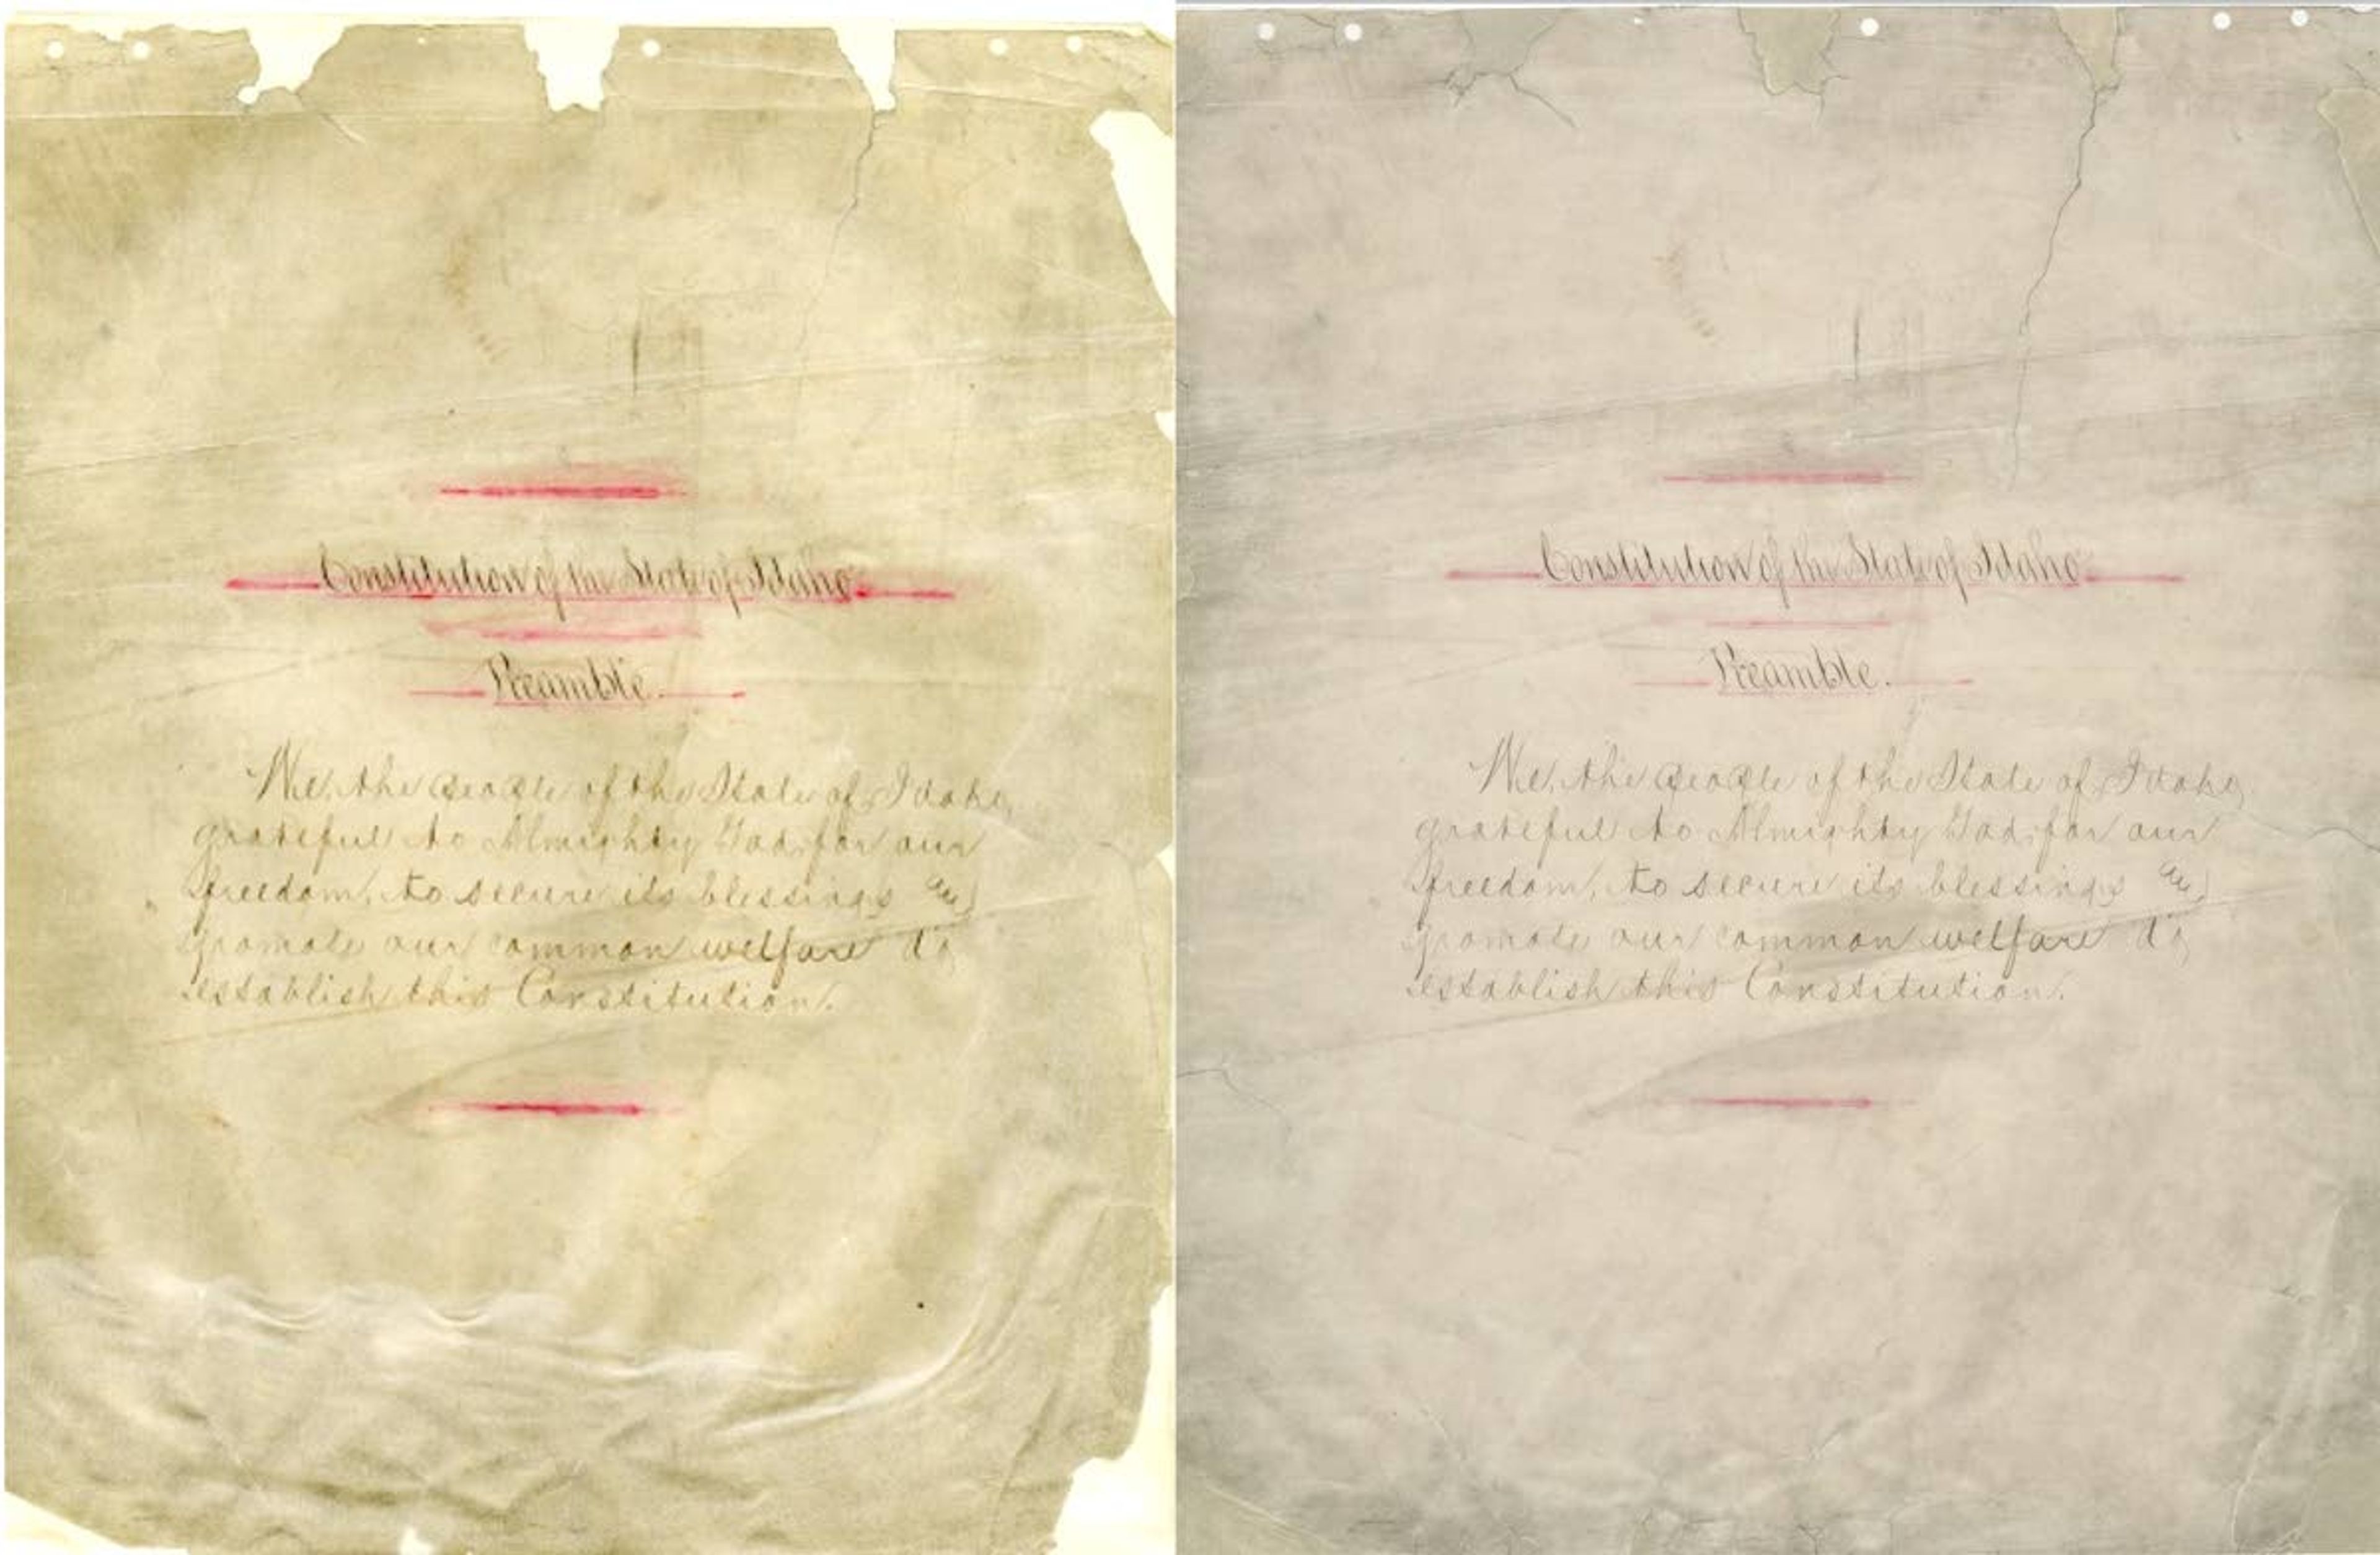 Constitution of the State of Idaho
Preamble.
We, the people of the State of Idaho,
grateful to Almighty God for our
freedom, to secure its blessings and
promote our common welfare do
establish this Constitution.
Constitution of the State of Idaho
Preamble.
We, the people of the State of Idaho,
grateful to Almighty God for our
freedom, to secure its blessings and
promote our common welfare do
establish this Constitution.